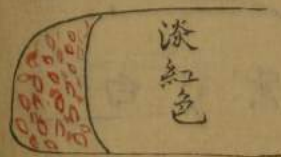 淡紅色